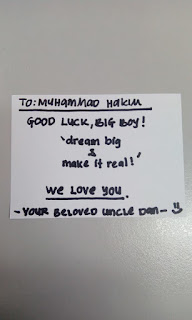 TO: MUHAMMAD HAKIM
GOOD LUCK, BIG BOY!
'dream big
&
make it real!'
WE LOVE YOU.
- YOUR BELOVED UNCLE DAN -